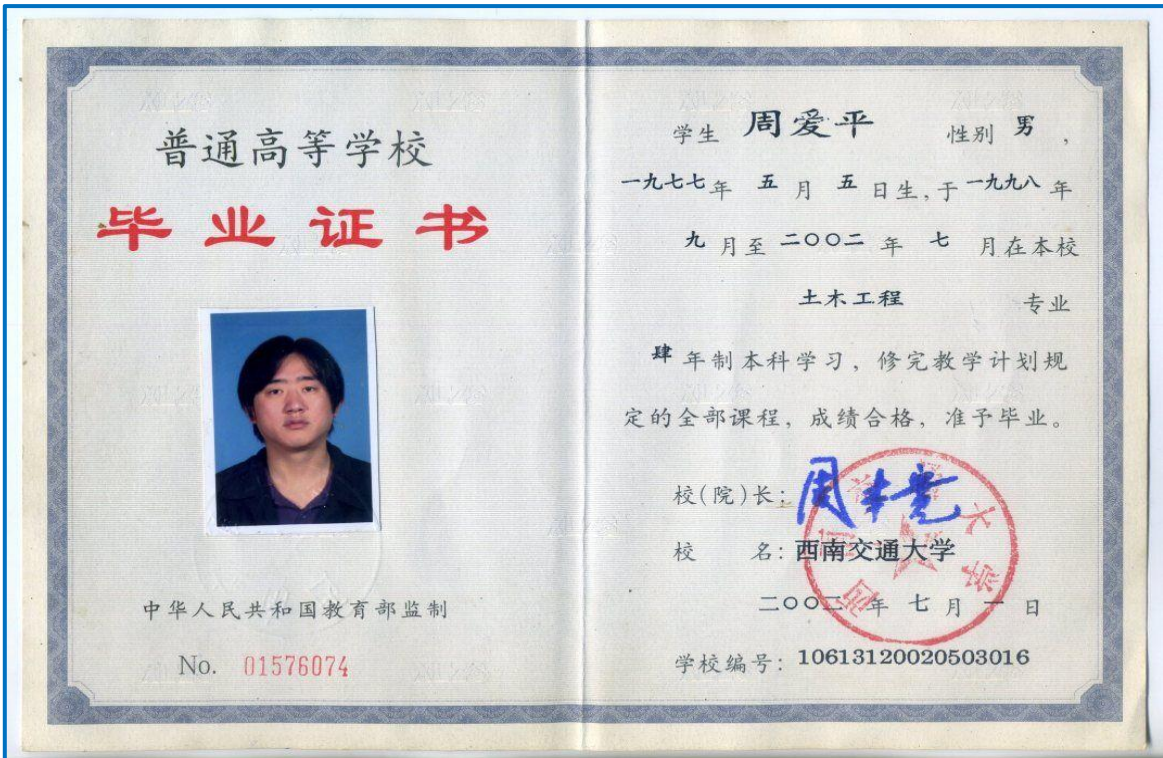 普通高等学校
毕业证书
中华人民共和国教育部监制
No. 01576074
学生 周爱平 性别 男，
一九七七年 五 月 五 日生，于一九九八 年
九 月至 二〇〇二 年 七 月在本校
土木工程 专业
肆 年制本科学习，修完教学计划规
定的全部课程，成绩合格，准予毕业。
校(院)长：
校 名：西南交通大学
二〇〇二 年 七 月 一 日
学校编号：10613120020503016
西南交通大学